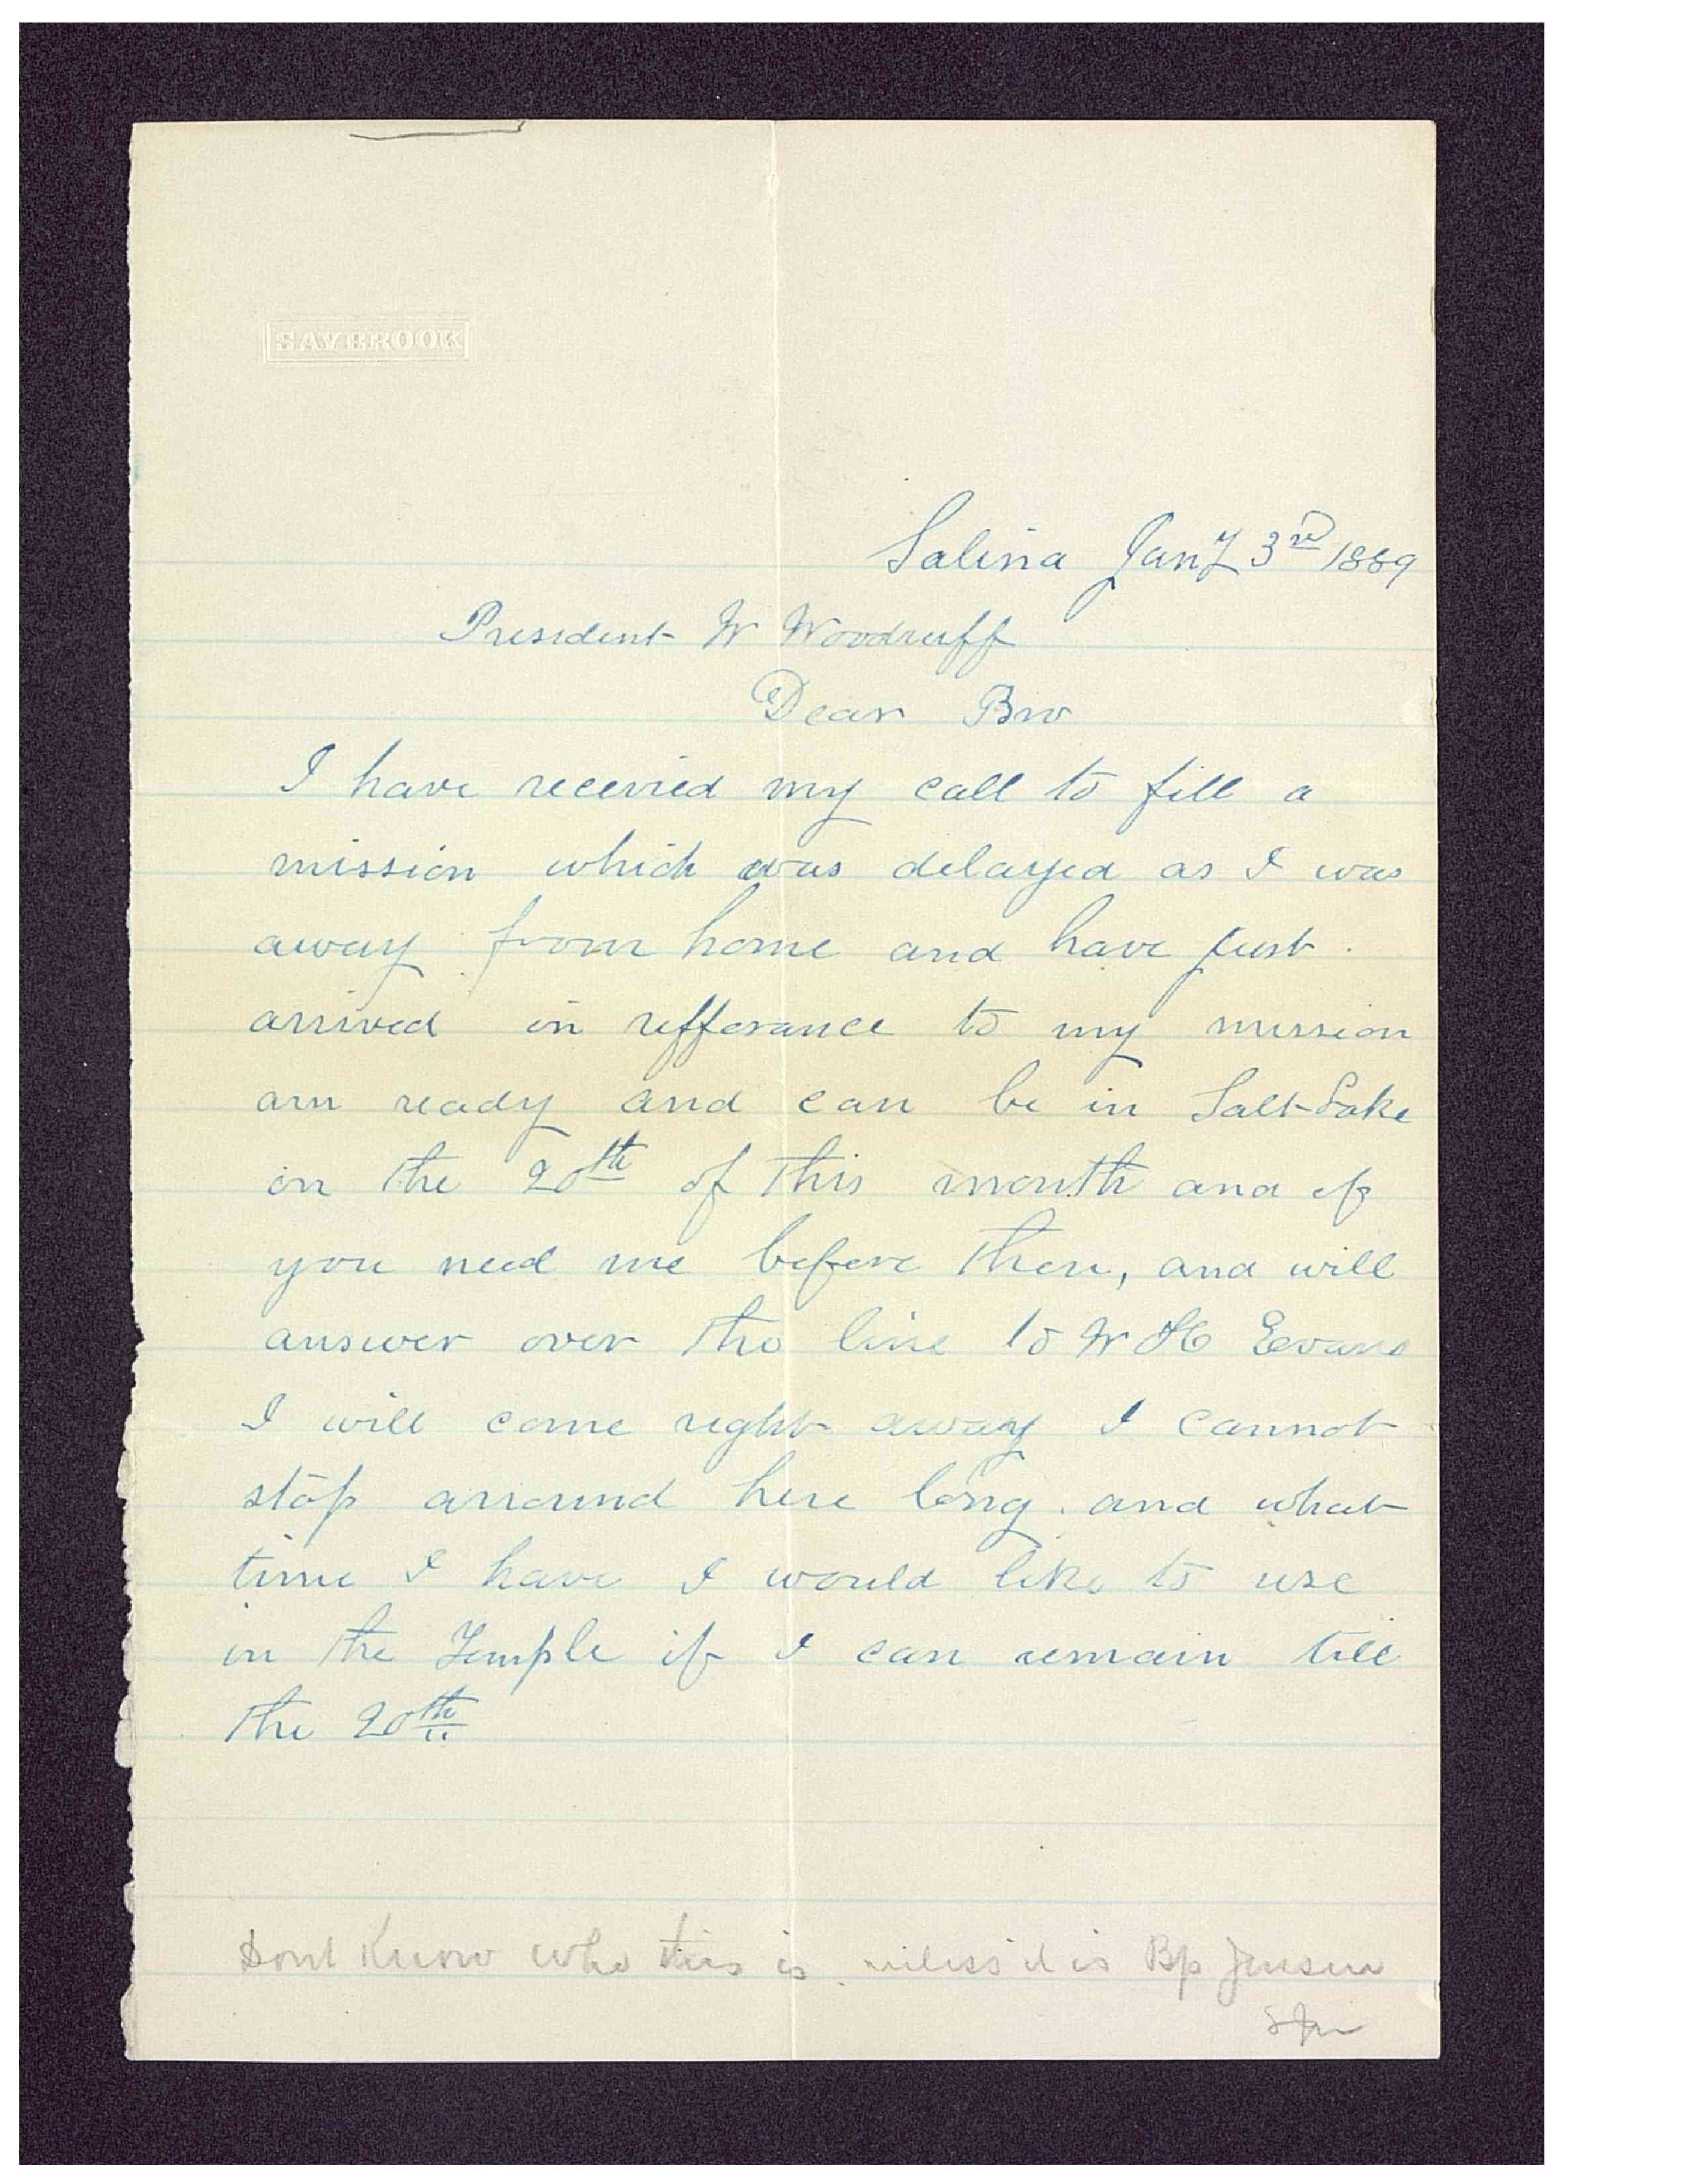 SAYBROOK
Salina Jany 3rd 1889
President W Woodruff
Dear Bro
I have receivied my call to fill a
mission which was delayed as I was
away from home and have just
arrived in refferance to my mission
am ready and can be in Salt Lake
on the 20th of this month and if
you need me before then, and will
answer over the line to W H Evans
I will come right away I cannot
stop arround here long. and what
time I have I would like to use
in the Temple if I can remain till
the 20th
Dont Know who this is. unless it is Bp Jensen